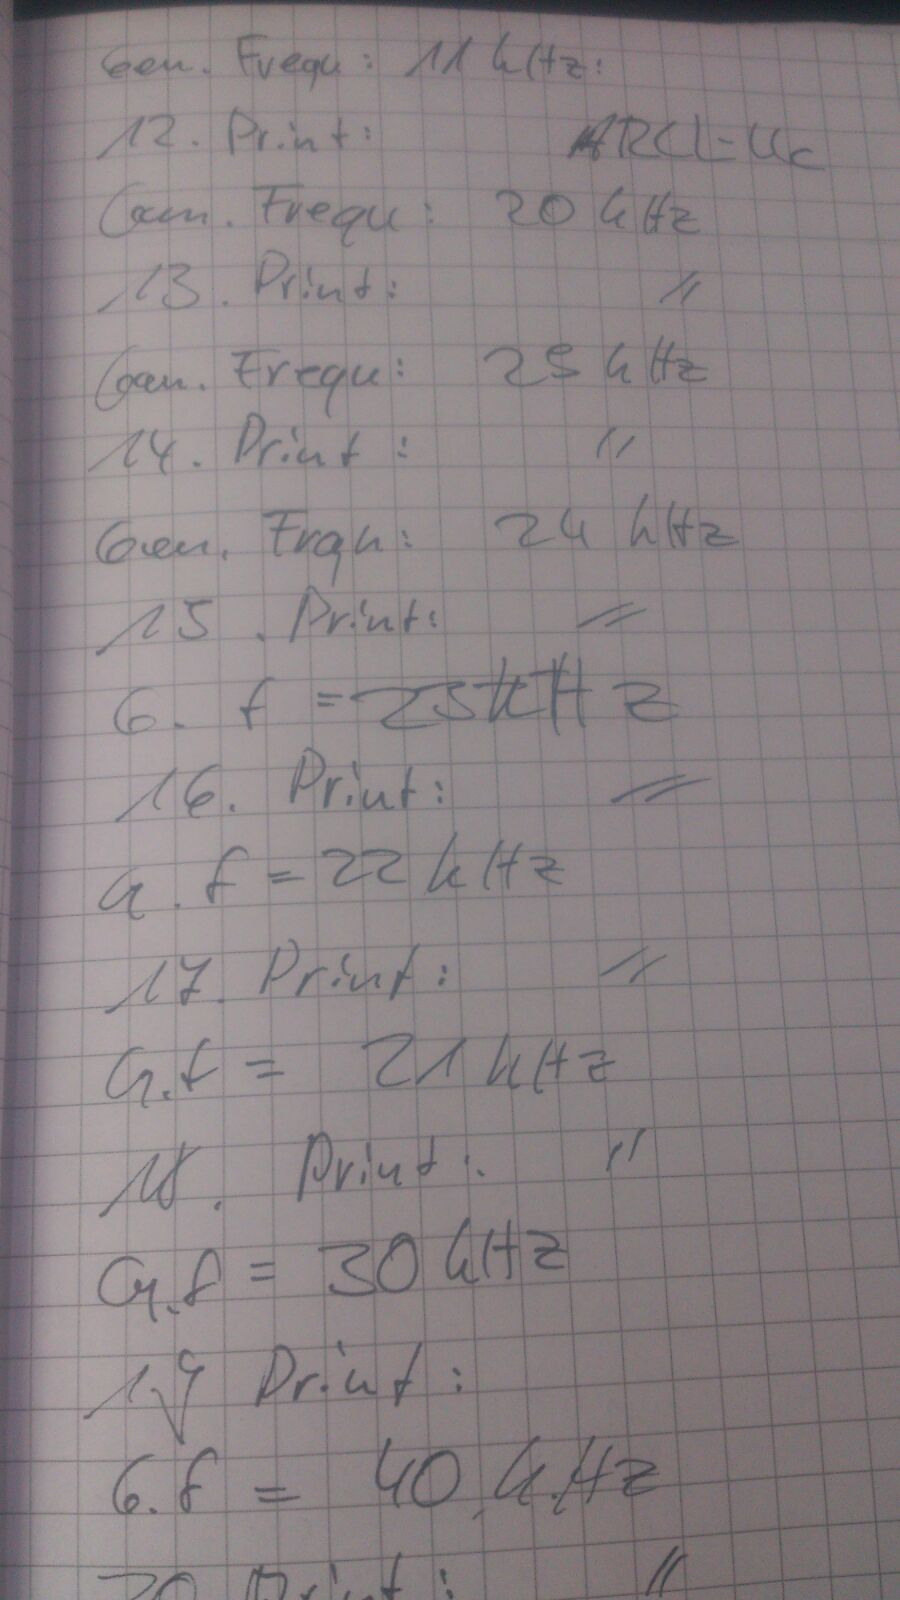 Gen. Frequ: 11 kHz:
12. Print: ARCL-Uc
Gen. Frequ: 20 kHz
13. Print: "
Gen. Frequ: 25 kHz
14. Print: "
Gen. Frqu: 24 kHz
15. Print: "
G. f = 23 kHz
16. Print: "
G. f = 22 kHz
17. Print: "
G. f = 21 kHz
18. Print: "
G. f = 30 kHz
19 Print:
G. f = 40 kHz
20 Print: "